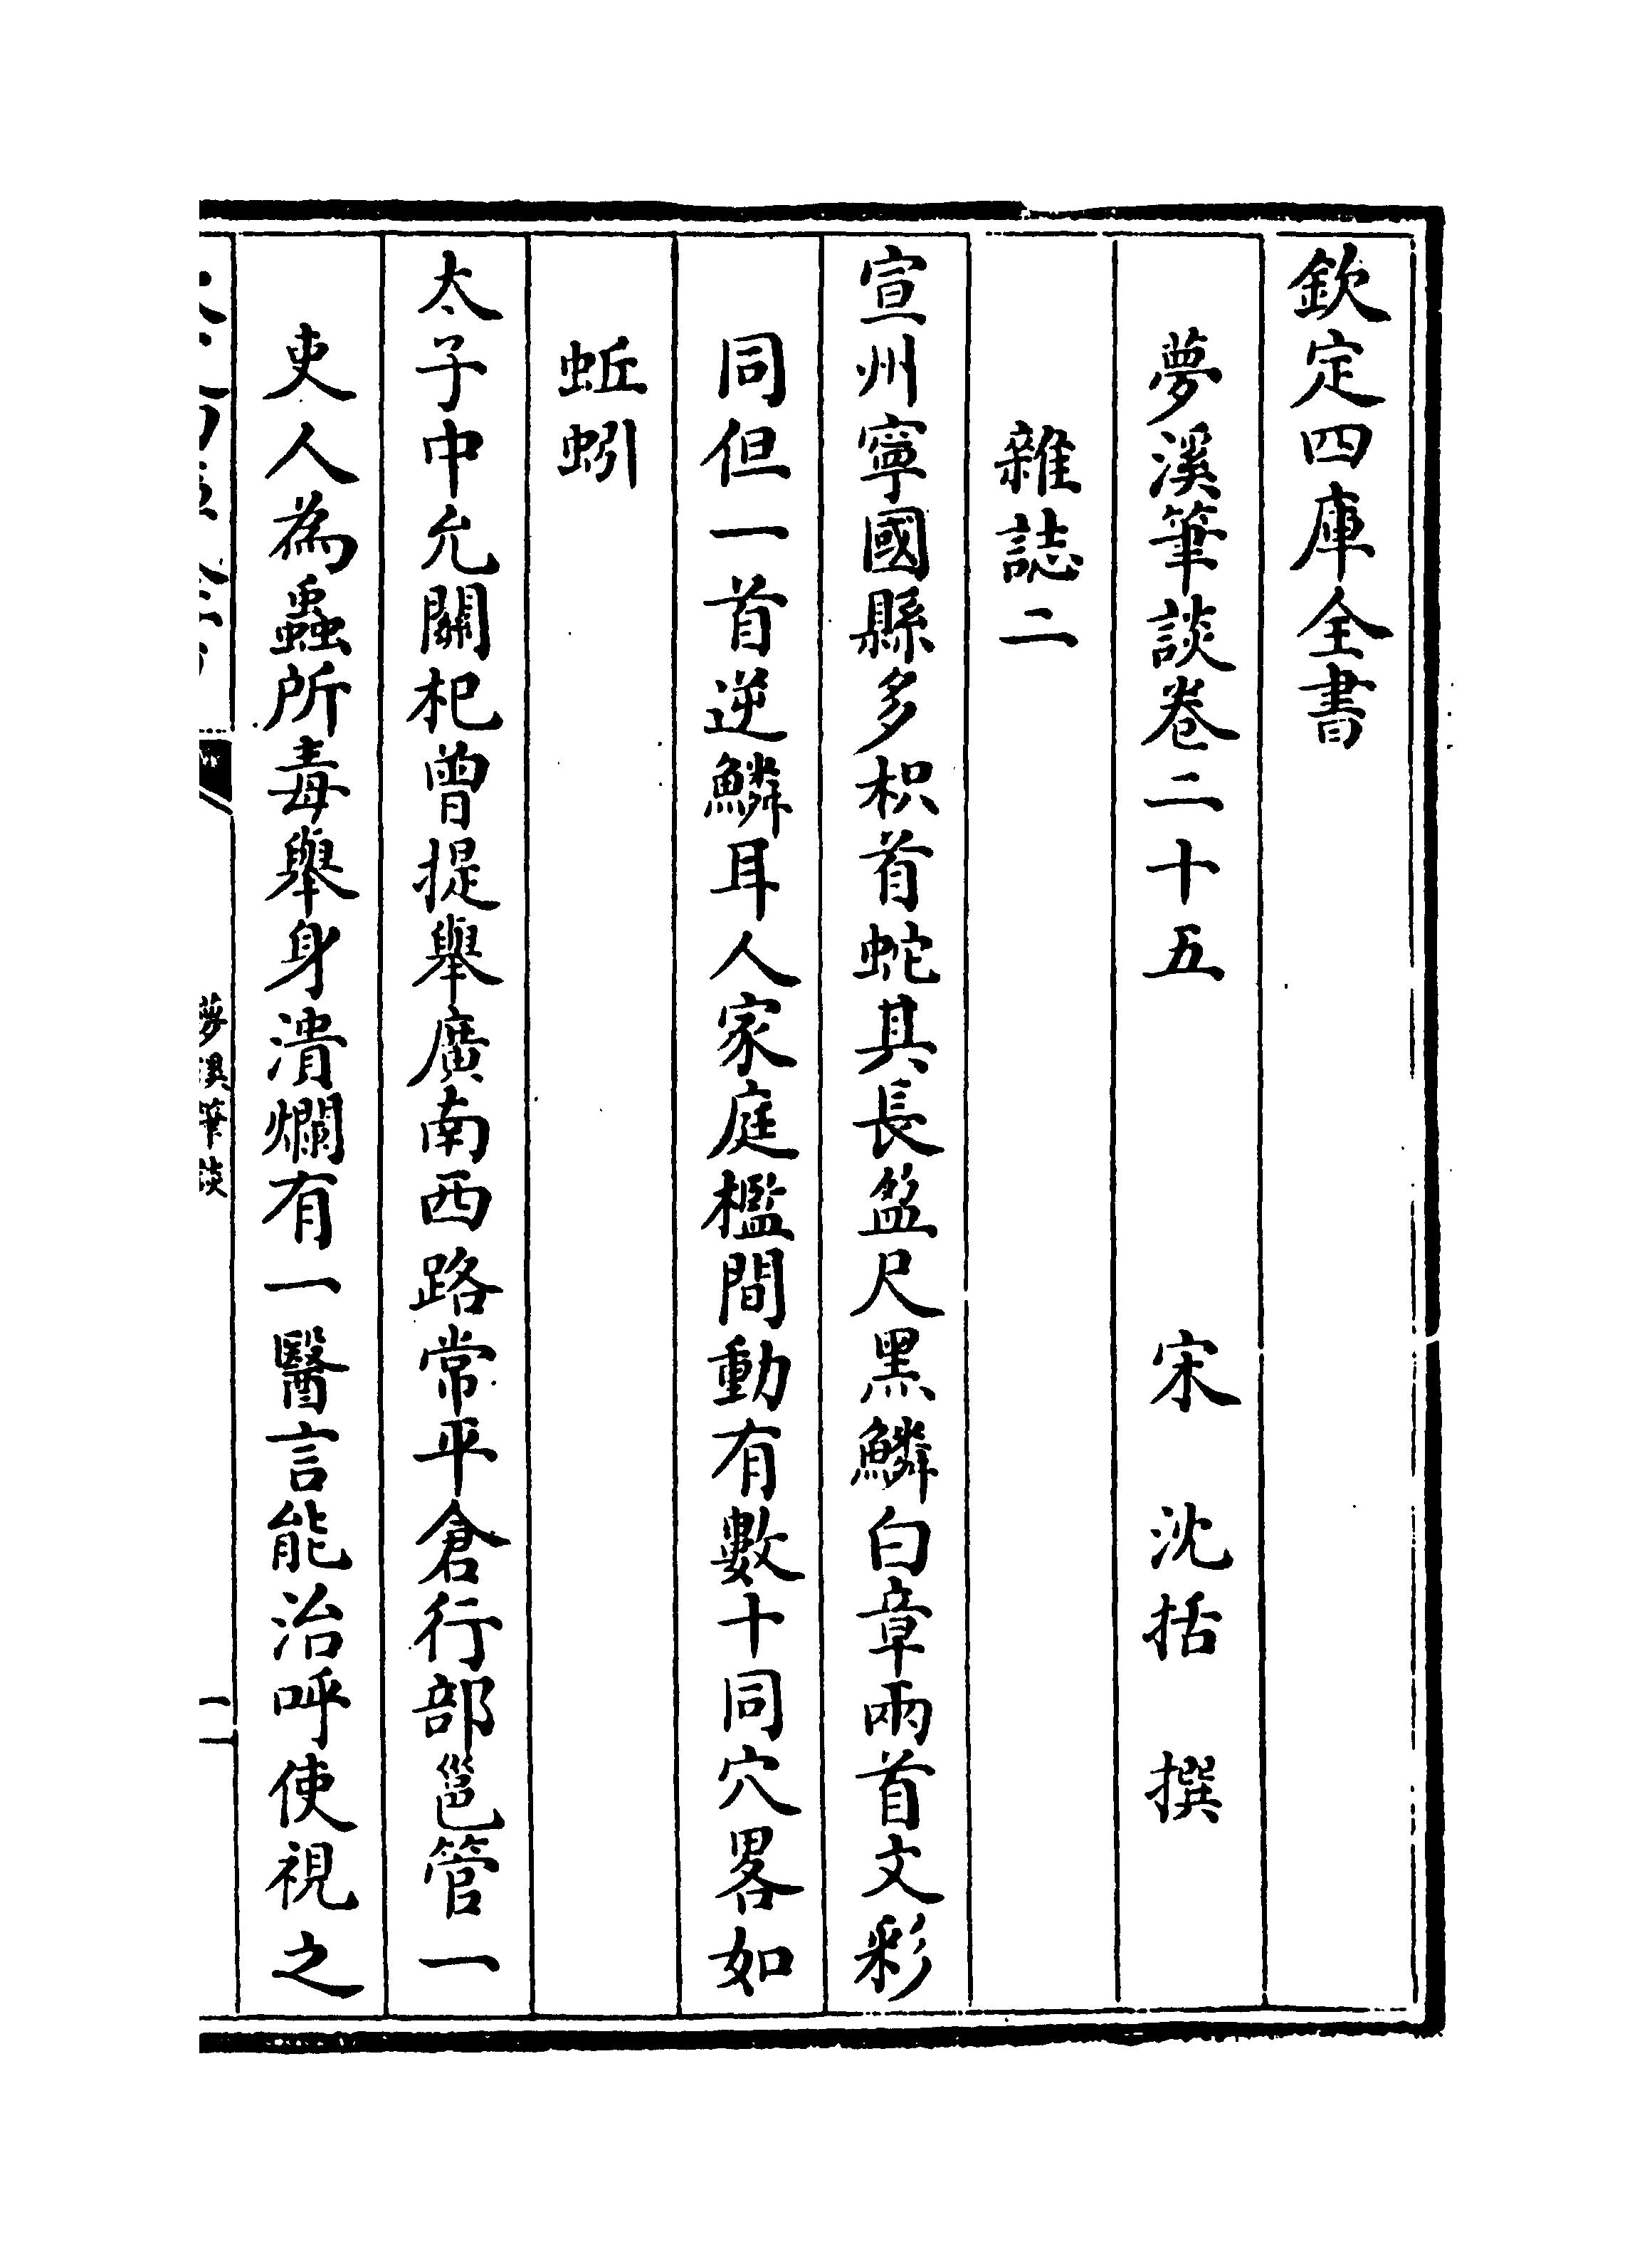 欽定四庫全書
夢溪筆談卷二十五 宋 沈括 撰
雜誌二
宣州寧國縣多枳首蛇其長盈尺黑鱗白章兩首文彩
同但一首逆鱗耳人家庭檻間動有數十同穴畧如
蚯蚓
太子中允關杞曾提舉廣南西路常平倉行部邕管一
吏人為蟲所毒舉身潰爛有一醫言能治呼使視之
夢溪筆談